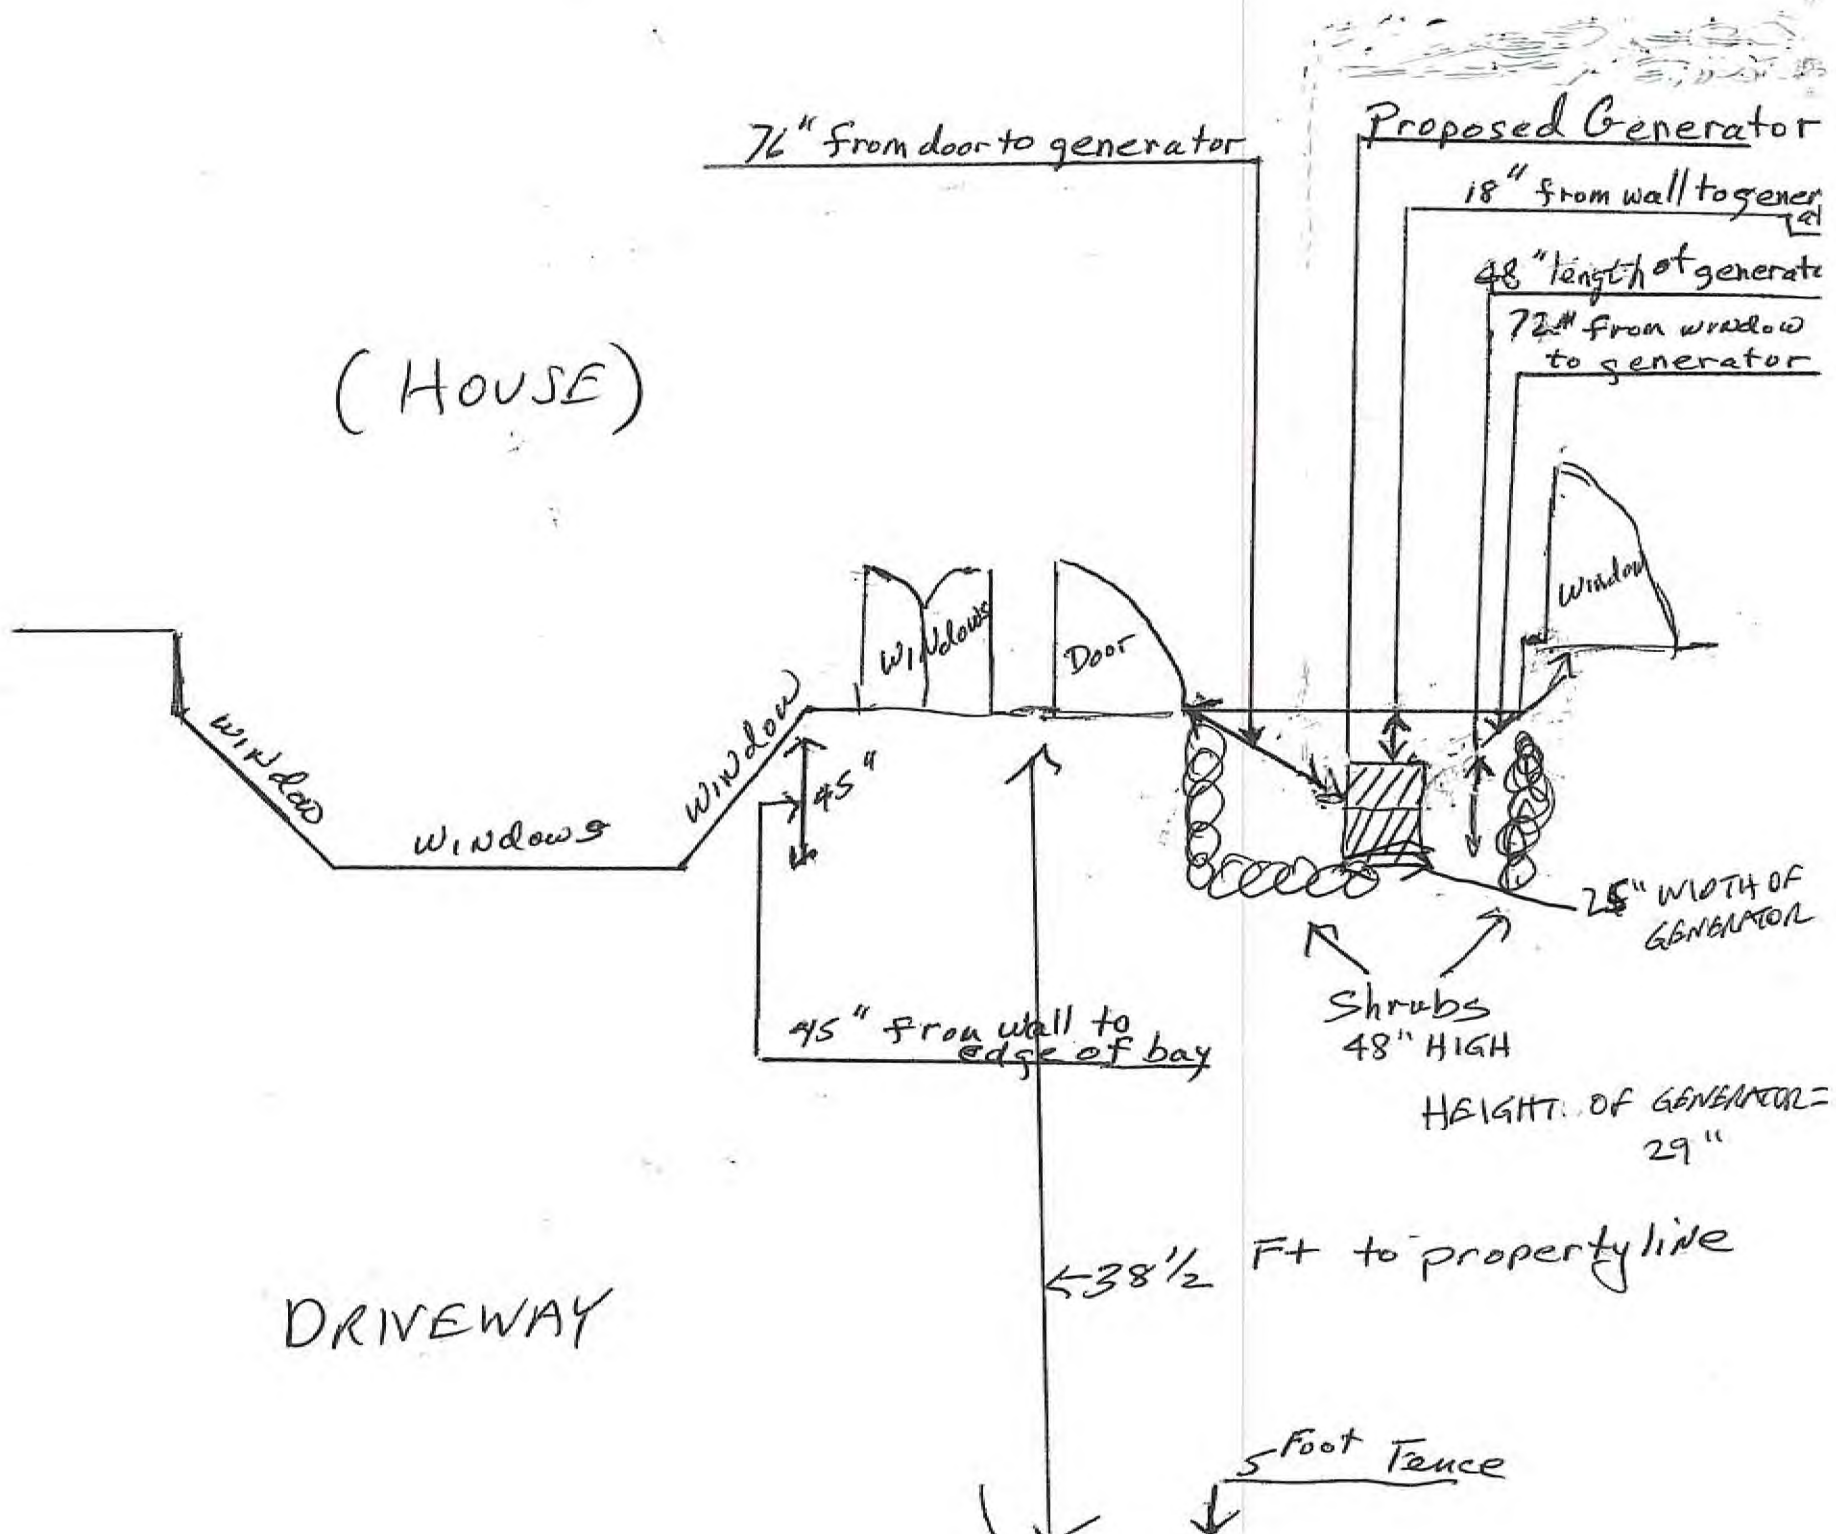 76" from door to generator
Proposed Generator
18" from wall to gener
at
48" length of generato
72" from window
to generator
(HOUSE)
Window
Windows
Door
Window
Window
Windows
45"
WIDTH OF
GENERATOR
Shrubs
48" HIGH
45" from wall to
edge of bay
HEIGHT OF GENERATOR =
29"
←38 1/2 Ft to property line
DRIVEWAY
5 Foot Fence